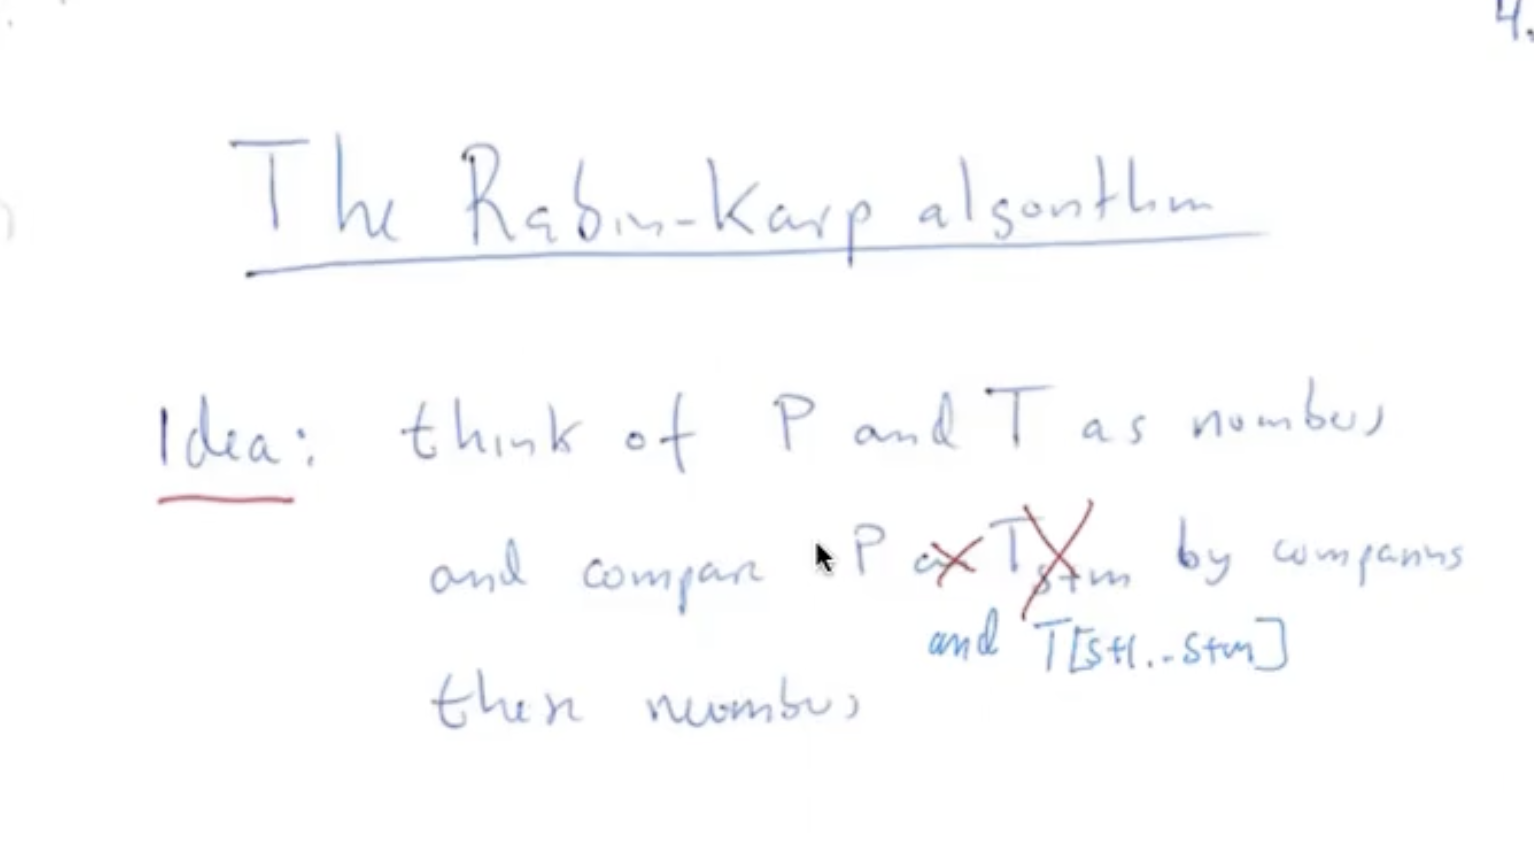 4.
The Rabin-Karp algorithm
Idea: think of P and T as numbers
and compare P T s+m by comparing
and T[s+1..s+m]
these numbers